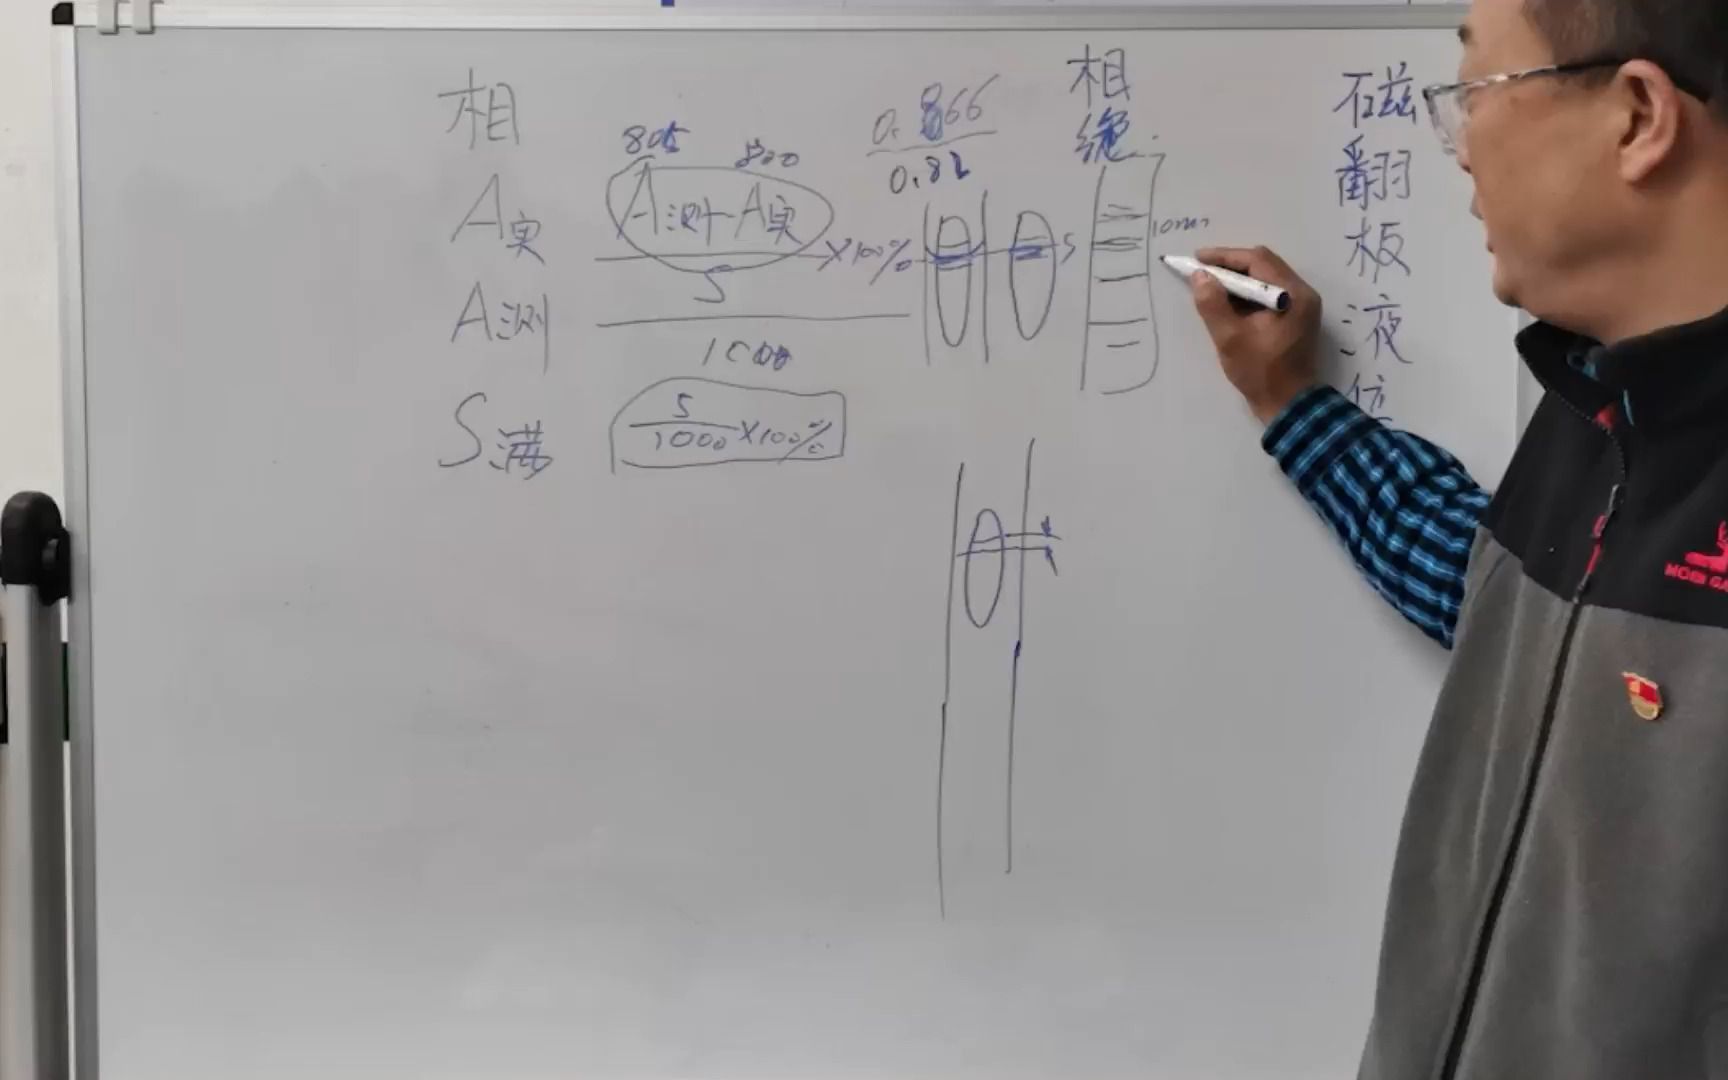 相
A实
A测
S满
805 800
A测-A实 ×100%
S
1000
5
1000 ×100%
0.866
0.82
5
相
绝
10mm
磁
翻
板
液
位